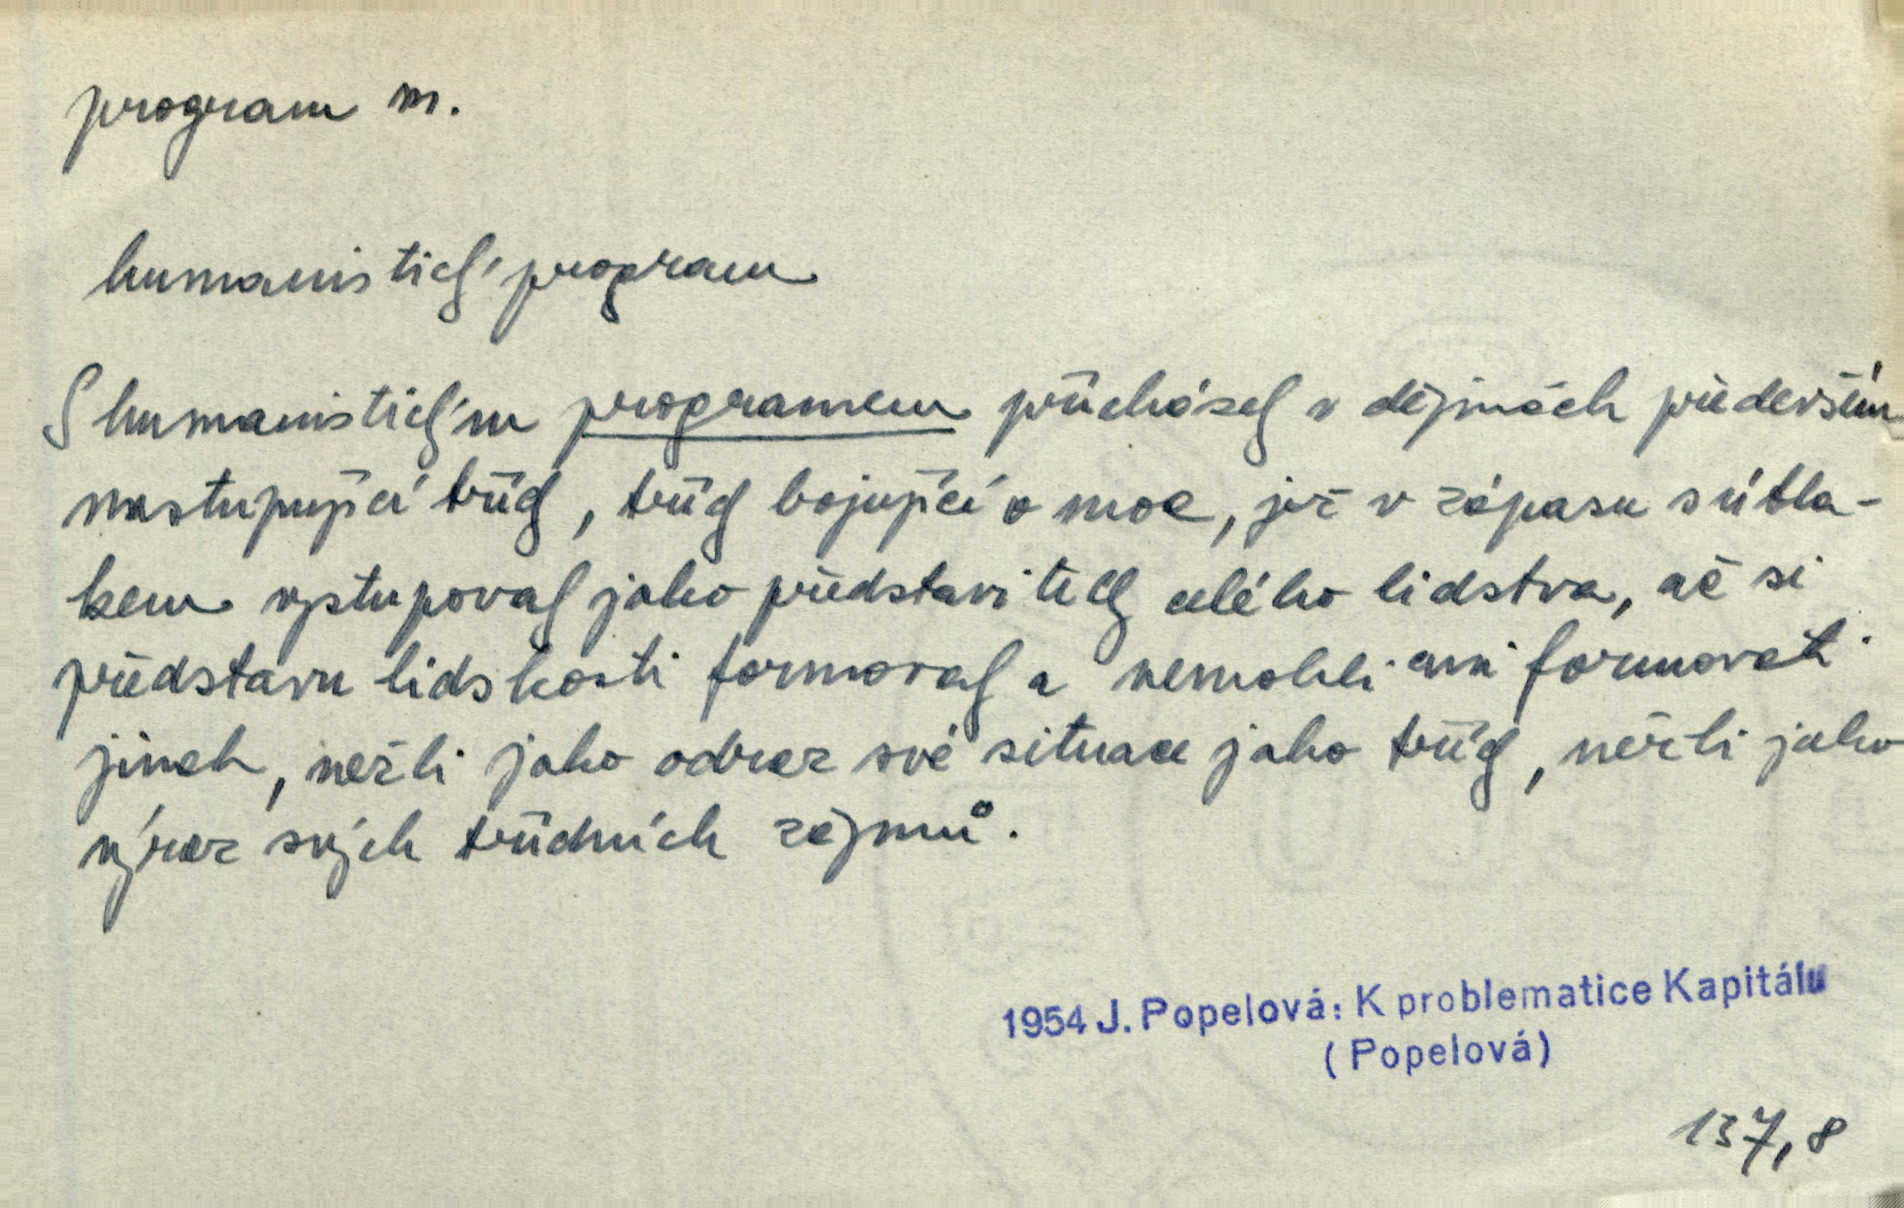 program m.
humanistický program
S humanistickým programem přicházely v dějinách především
nastupující třídy, třídy bojující o moc, jež v zápasu s útla-
kem vystupovaly jako představitelky celého lidstva, ač si
představu lidskosti formovaly a nemohli ani formovati
jinak, nežli jako odraz své situace jako třídy, nežli jako
výraz svých třídních zájmů.
1954 J. Popelová: K problematice Kapitálu
(Popelová)
137,8